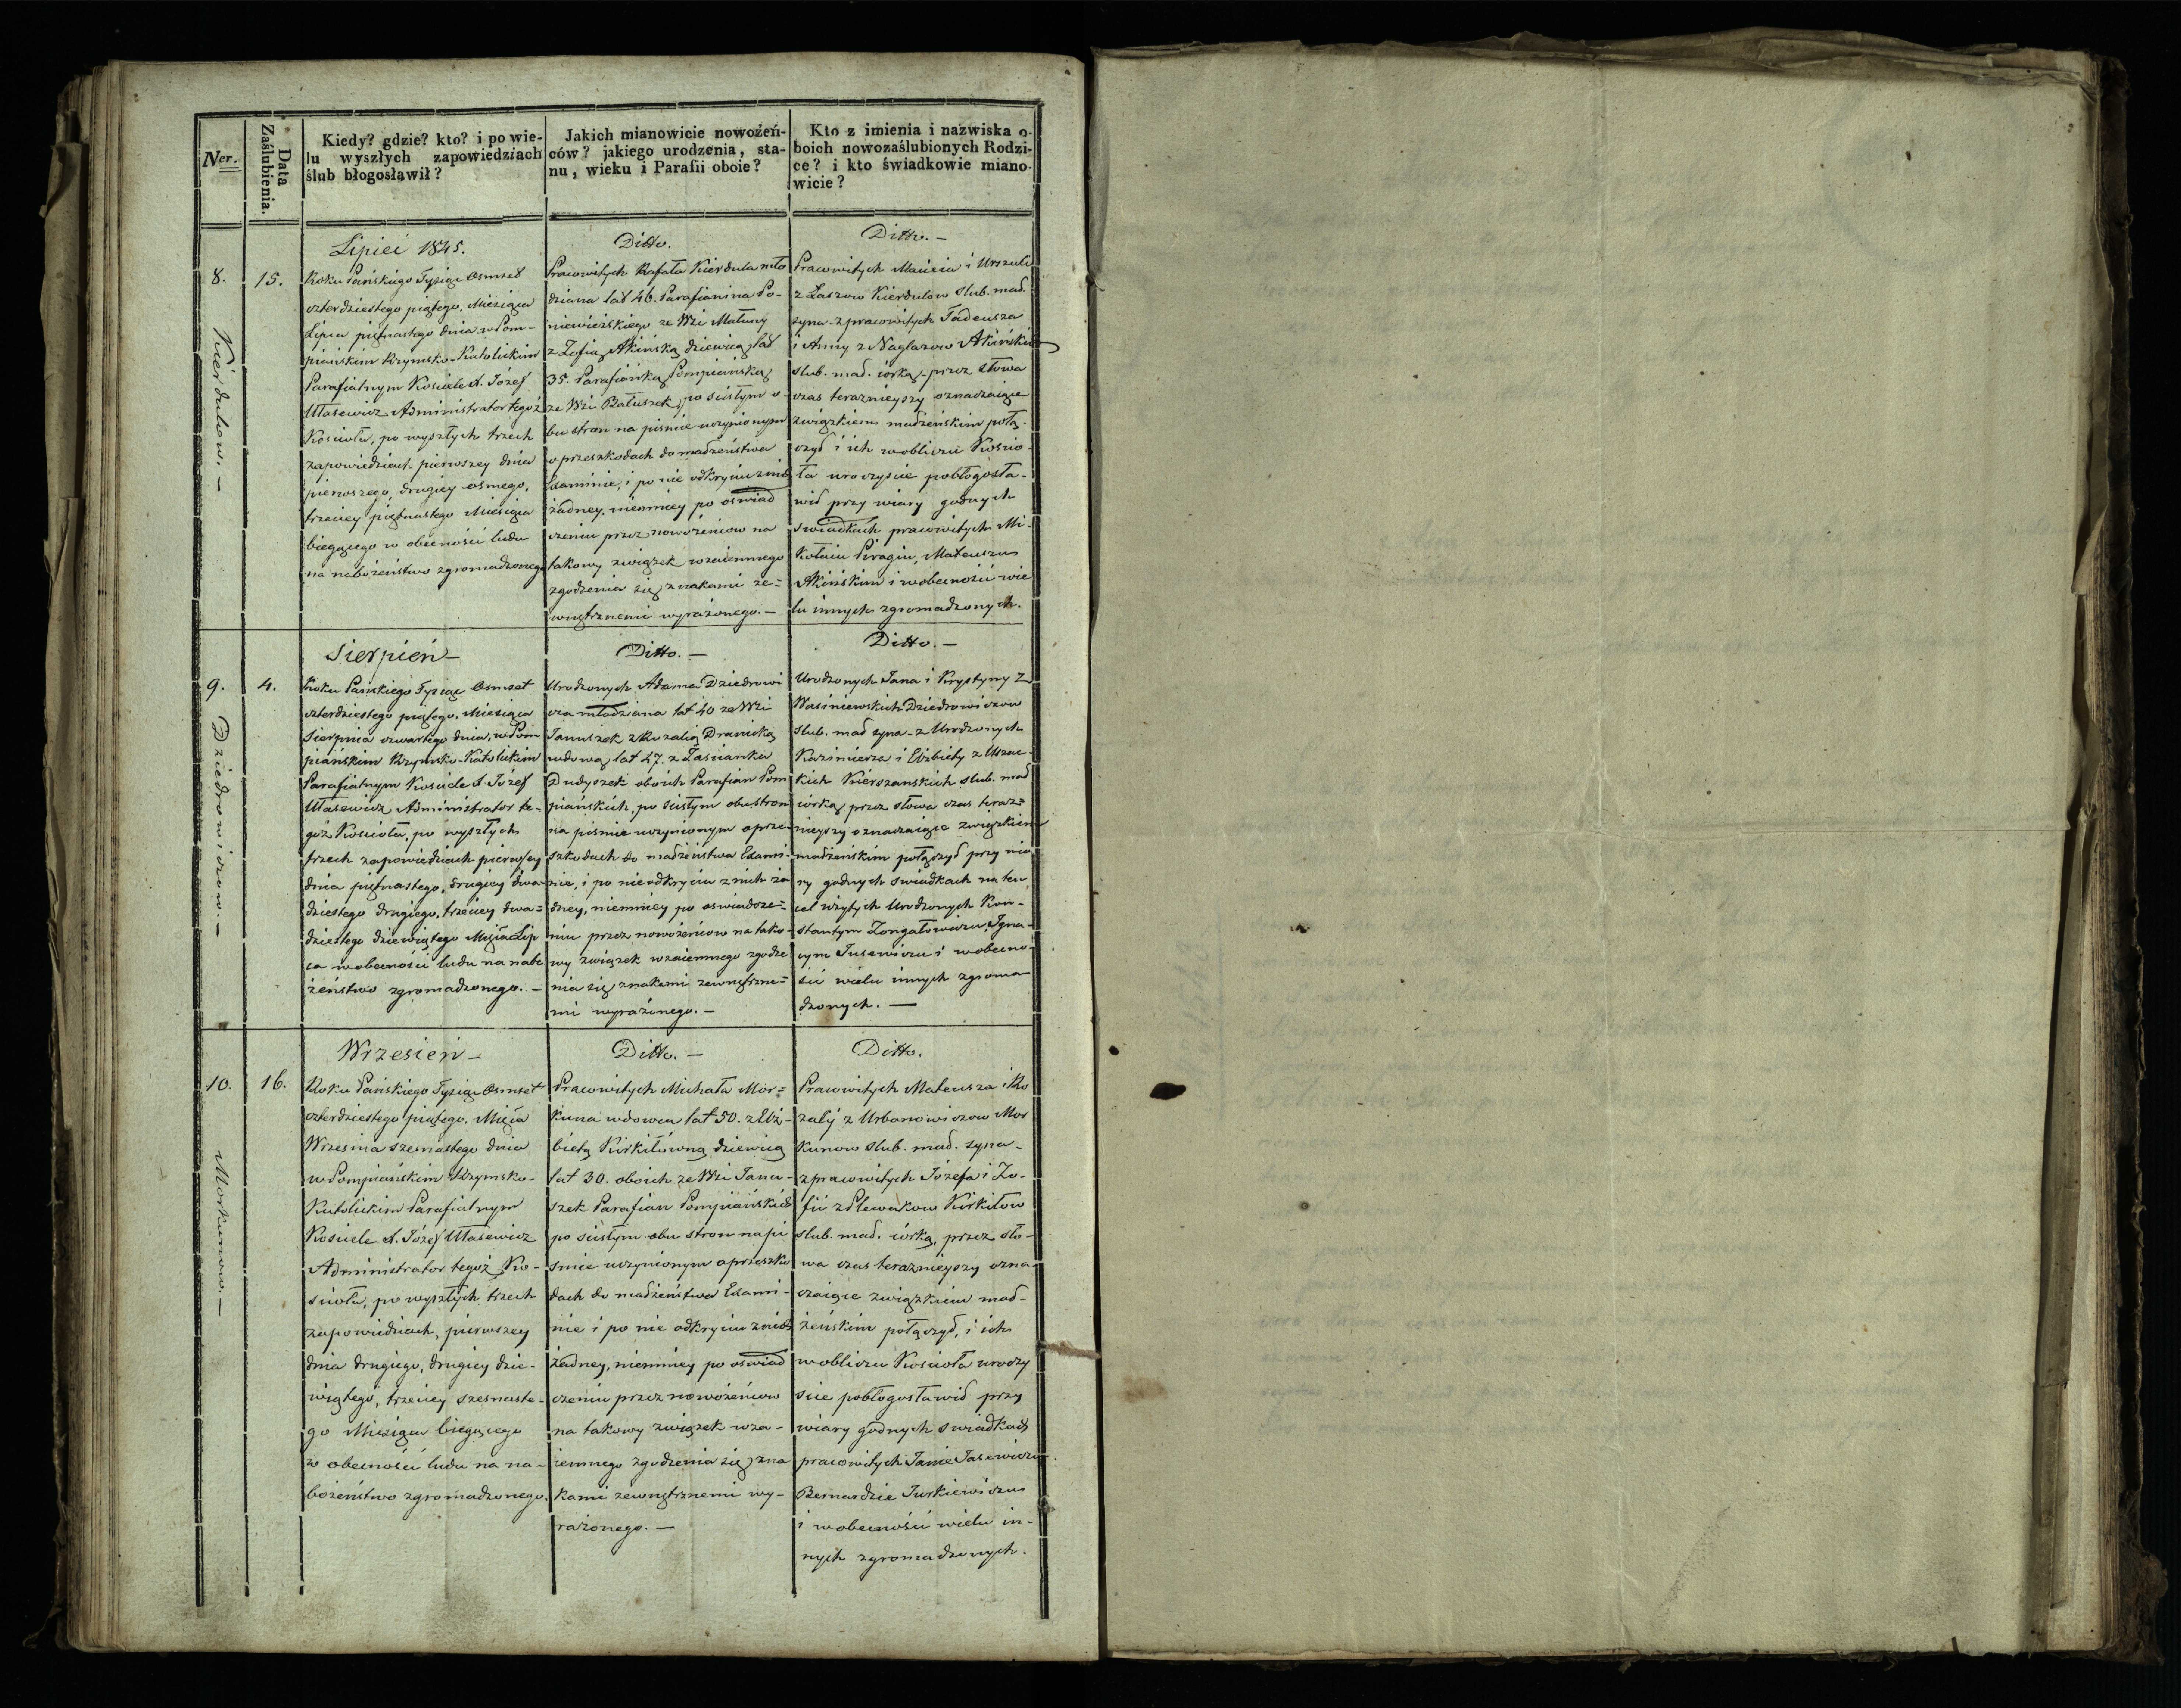 Ner.
Data
Zaślubienia.
Kiedy? gdzie? kto? i po wie-
lu wyszłych zapowiedziach
ślub błogosławił?
Jakich mianowicie nowożeń-
ców? jakiego urodzenia, sta-
nu, wieku i Parafii oboie?
Kto z imienia i nazwiska o-
boich nowozaślubionych Rodzi-
ce? i kto świadkowie miano-
wicie?
8.
Kierdulow. -
15.
Lipiei 1845.
Roku Pańskiego Tysiąc Osmset
czterdziestego piątego, Miesiąca
Lipca piętnastego dnia w Pom-
piańskim Rzymsko-Katolickim
Parafialnym Kościele X. Józef
Ułasewicz Administrator tegóż
Kościoła, po wyszłych trzech
zapowiedziach pierwszey dnia
pierwszego, drugiey osmego,
trzeciey piętnastego Miesiąca
biegącego w obecności ludu
na nabożeństwo zgromadzonego
Ditto.
Pracowitych Rafała Kierdula mło
dziana lat 46. Parafianina Po-
niewieżskiego ze Wsi Matuny
z Zofią Akińską dziewicą lat
35. Parafiánką Pompiańską
ze Wsi Bałuszek, po scisłym o-
bu stron na piśmie uczynionym
o przeszkodach do małżeństwa
Examinie, i po nie odkryciu z nich
żadney, niemniey po oswiad
czeniu przez nowożeńcow na
takowy związek wzaiemnego
zgodzenia się znakami ze=
wnętrznemi wyrażonego. -
Ditto. -
Pracowitych Macieia i Urszuli
z Laszow Kierdulow slub. mał.
syna - z pracowitych Tadeusza
i Anny z Naglazow Akińskich
slub. mał. córką - przez słowa
czas teraznieyszy oznaczaiące
związkiem małżeńskim połą-
czył i ich w obliczu Kościo-
ła uroczyscie pobłogosła-
wił przy wiary godnych
swiadkach pracowitych Mi-
kołaiu Piragiu, Mateuszu
Akińskim i w obecności wie
lu innych zgromadzonych.
9.
Dziedrowiczow. -
4.
Sierpień -
Roku Pańskiego Tysiąc Osmset
czterdziestego piątego, Miesiąca
Sierpnia czwartego dnia, w Pom
piańskim Rzymsko-Katolickim
Parafialnym Kościele X. Józef
Ułasewicz Administrator te-
góż Kościoła, po wyszłych
trzech zapowiedziach pierwszey
dnia piętnastego, drugiey dwa-
dziestego drugiego, trzeciey dwa=
dziestego dziewiątego Mcąca Lip
ca w obecności ludu na nabo
żeństwo zgromadzonego. -
Ditto. -
Urodzonych Adama Dziedrowi
cza młodziana lat 40 ze Wsi
Januszek z Rozalią Dranicką
wdową lat 47. z Zascianka
Dudyszek oboich Parafian Pom
piańskich, po scisłym obu stron
na piśmie uczynionym o prze
szkodach do małżeństwa Exami-
nie, i po nieodkryciu z nich ża
dney, niemniey po oswiadcze=
niu przez nowożeńcow na tako-
wy związek wzaiemnego zgodze
nia się znakami zewnętrzne=
mi wyrażonego. -
Ditto. -
Urodzonych Jana i Krystyny z
Wasiniewskich Dziedrowiczow
slub. mał syna - z Urodzonych
Kazimierza i Elżbiety z Uszac-
kich Kierszanskich slub. mał
córką przez słowa czas teraz=
nieyszy oznaczaiące związkiem
małżeńskim połączył przy wia
ry godnych swiadkach na ten
cel użytych Urodzonych Kon-
stantym Zongałłowiczu, Igna-
cym Jusewiczu i w obecno-
ści wielu innych zgroma-
dzonych. -
10.
Morkunow. -
16.
Wrzesień -
Roku Pańskiego Tysiąc Osmset
czterdziestego piątego, Mcąca
Wrzesnia szesnastego dnia
w Pompiańskim Rzymsko-
Katolickim Parafialnym
Kościele X. Józef Ułasewicz
Administrator tegóż Ko-
ścioła, po wyszłych trzech
zapowiedziach, pierwszey
dnia drugiego, drugiey dzie-
wiątego, trzeciey szesnaste-
go Miesiąca biegącego
w obecności ludu na na-
bożeństwo zgromadzonego.
Ditto. -
Pracowitych Michała Mor=
kuna wdowca lat 50. z Elż-
bietą Kirkiłówną dziewicą
lat 30. oboich ze Wsi Janu-
szek Parafian Pompiańskich
po scisłym obu stron na pi
śmie uczynionym o przeszko
dach do małżeństwa Exami-
nie i po nie odkryciu z nich
żadney, niemniey po oswiad
czeniu przez nowożeńcow
na takowy związek wza-
iemnego zgodzenia się zna
kami zewnętrznemi wy-
rażonego. -
Ditto.
Pracowitych Mateusza i Ro
zalij z Urbanowiczow Mor
kunow slub. mał. syna -
z pracowitych Józefa i Zo-
fii z Plewakow Kirkiłow
slub. mał. córką, przez sło-
wa czas teraznieyszy ozna-
czaiące związkiem mał-
żeńskim połączył, i ich
w obliczu Kościoła uroczy
scie pobłogosławił przy
wiary godnych swiadkach
pracowitych Janie Jasewiczu
Bernardzie Jurkiewiczu
i w obecności wielu in-
nych zgromadzonych.